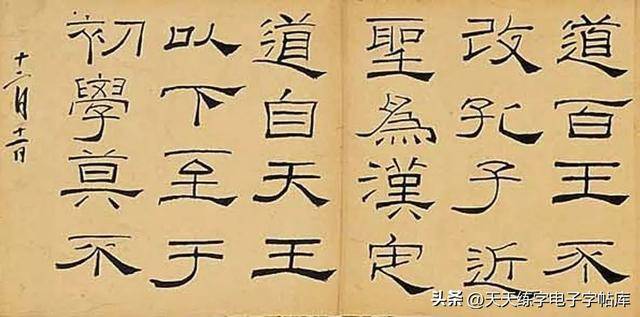 道百王不
改孔子近
聖為漢定
道自天王
以下至于
初學莫不
十二月
头条 @天天练字电子字帖库